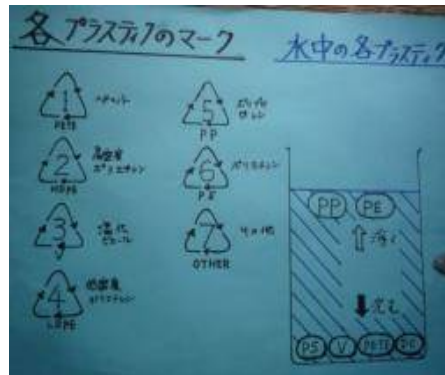 各プラスティクのマーク
1
PETE
ペット
2
HDPE
高密度
ポリエチレン
3
V
塩化
ビニール
4
LDPE
低密度
ポリエチレン
5
PP
ポリプロ
ピレン
6
PS
ポリスチレン
7
OTHER
その他
水中の各プラスティク
PP PE
浮く
沈む
PS V PETE PC